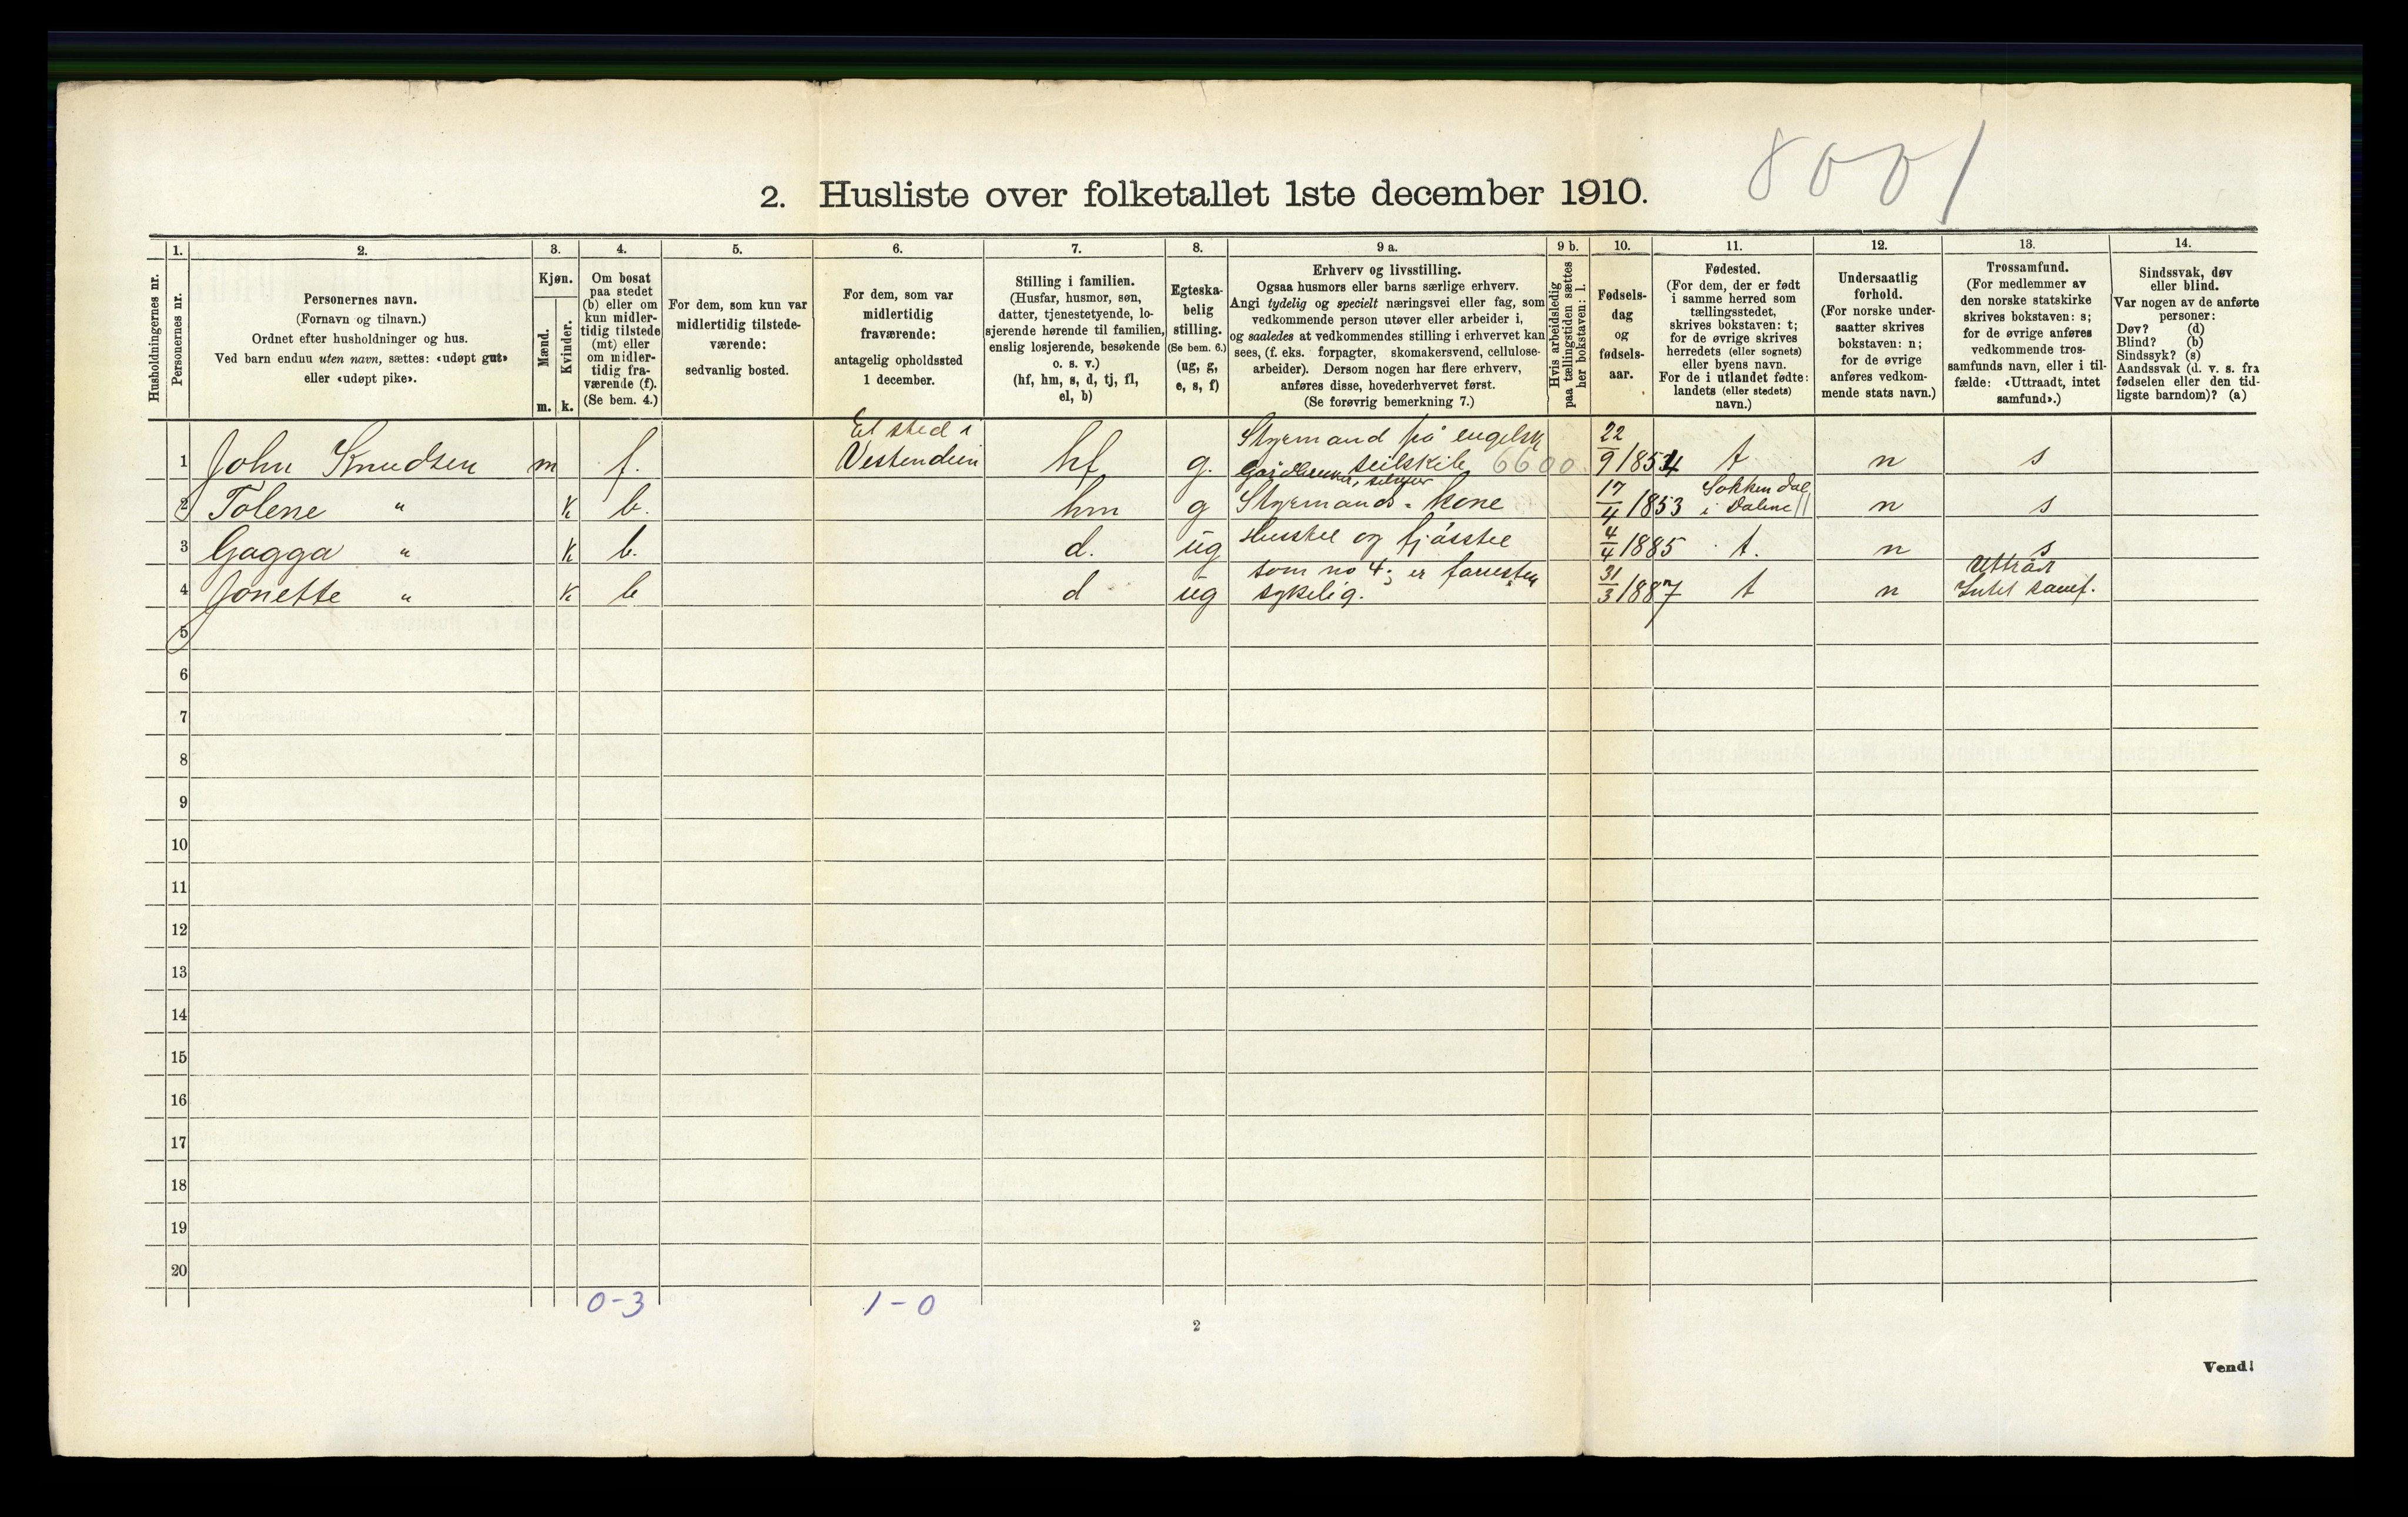 8001
2. Husliste over folketallet 1ste december 1910.
Husholdningernes nr.
1.
Personernes nr.
2.
Personernes navn.
(Fornavn og tilnavn.)
Ordnet efter husholdninger og hus.
Ved barn endnu uten navn, sættes: «udøpt gut»
eller «udøpt pike».
3.
Kjøn.
Mænd.
Kvinder.
m. k.
4.
Om bosat
paa stedet
(b) eller om
kun midler-
tidig tilstede
(mt) eller
om midler-
tidig fra-
værende (f).
(Se bem. 4.)
5.
For dem, som kun var
midlertidig tilstede-
værende:
sedvanlig bosted.
6.
For dem, som var
midlertidig
fraværende:
antagelig opholdssted
1 december.
7.
Stilling i familien.
(Husfar, husmor, søn,
datter, tjenestetyende, lo-
sjerende hørende til familien,
enslig losjerende, besøkende
o. s. v.)
(hf, hm, s, d, tj, fl,
el, b)
8.
Egteska-
belig
stilling.
(Se bem. 6.)
(ug, g,
e, s, f)
9 a.
Erhverv og livsstilling.
Ogsaa husmors eller barns særlige erhverv.
Angi tydelig og specielt næringsvei eller fag, som
vedkommende person utøver eller arbeider i,
og saaledes at vedkommendes stilling i erhvervet kan
sees, (f. eks. forpagter, skomakersvend, cellulose-
arbeider). Dersom nogen har flere erhverv,
anføres disse, hovederhvervet først.
(Se forøvrig bemerkning 7.)
9 b.
Hvis arbeidsledig
paa tællingstiden sættes
her bokstaven: l.
10.
Fødsels-
dag
og
fødsels-
aar.
11.
Fødested.
(For dem, der er født
i samme herred som
tællingsstedet,
skrives bokstaven: t;
for de øvrige skrives
herredets (eller sognets)
eller byens navn.
For de i utlandet fødte:
landets (eller stedets)
navn.)
12.
Undersaatlig
forhold.
(For norske under-
saatter skrives
bokstaven: n;
for de øvrige
anføres vedkom-
mende stats navn.)
13.
Trossamfund.
(For medlemmer av
den norske statskirke
skrives bokstaven: s;
for de øvrige anføres
vedkommende tros-
samfunds navn, eller i til-
fælde: «Uttraadt, intet
samfund».)
14.
Sindssvak, døv
eller blind.
Var nogen av de anførte
personer:
Døv? (d)
Blind? (b)
Sindssyk? (s)
Aandssvak (d. v. s. fra
fødselen eller den tid-
ligste barndom)? (a)
1 John Knudsen m f. Et sted i Vestendien hf g. Styrmand på engelsk seilskib, 6600 22/9 1854 t n s
2 Tolene " k b. hm g Styrmands-kone 17/4 1853 Sokkendal i Dalene n s
3 Gagga " k b. d. ug Husstel og fjøsstel 4/4 1885 t. n s
4 Jonette " k b d ug som no 4; er forresten sykelig. 31/3 1887 t n Uttråt Intet samf.
5
6
7
8
9
10
11
12
13
14
15
16
17
18
19
20
0-3 1-0
2
Vend!